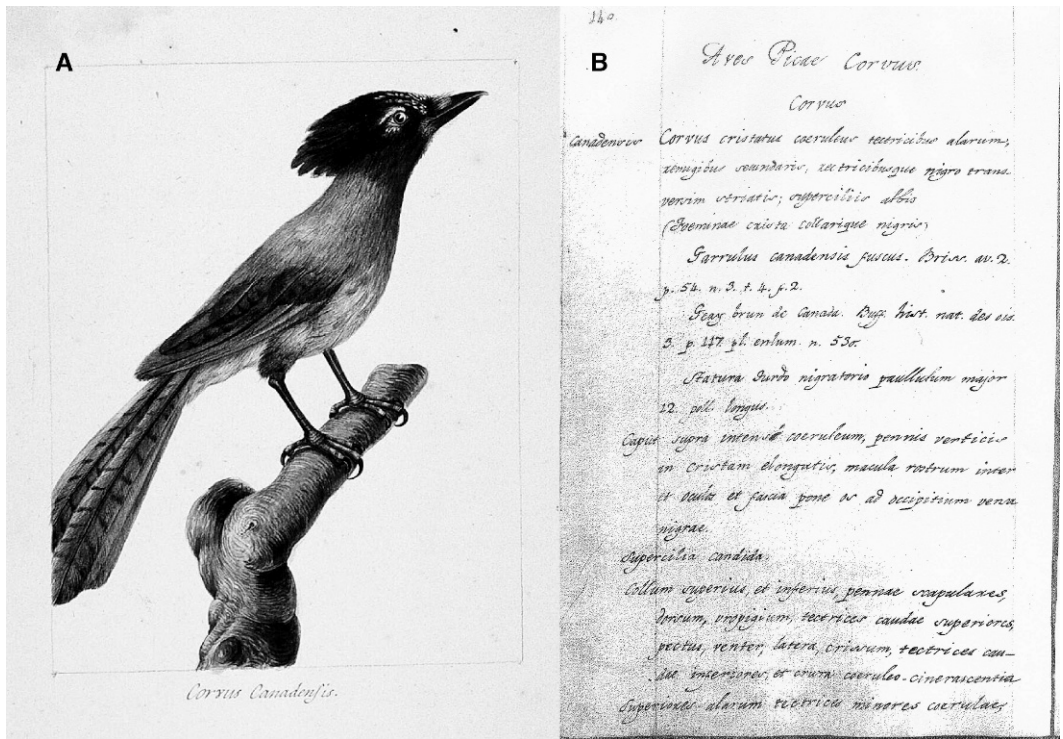 A
Corvus Canadensis.
B
140.
Aves Picae Corvus.
Corvus
Canadensis Corvus cristatus coeruleus tectricibus alarum,
remigibus secundariis, rectricibusque nigro trans-
versim striatis; superciliis albis
(Foeminae crista collarique nigris)
Garrulus canadensis fuscus. Briss. av. 2.
p. 54. n. 3. t. 4. f. 2.
Geay brun de Canada. Buff. hist. nat. des ois.
3. p. 117. pl. enlum. n. 530.
Statura Turdo paullulum major
12 poll. longus.
Caput supra intensè coeruleum, pennis verticis
in cristam elongatis, macula rostrum inter
et oculos et fascia pone os ad occipitium versa
nigrae.
Supercilia candida.
Collum superius, et inferius, pennae scapulares,
dorsum, uropigium, tectrices caudae superiores,
pectus, venter, latera, crissum, tectrices cau-
dae inferiores, et crura coeruleo-cinerascentia
Superiores alarum tectrices minores coerulaes